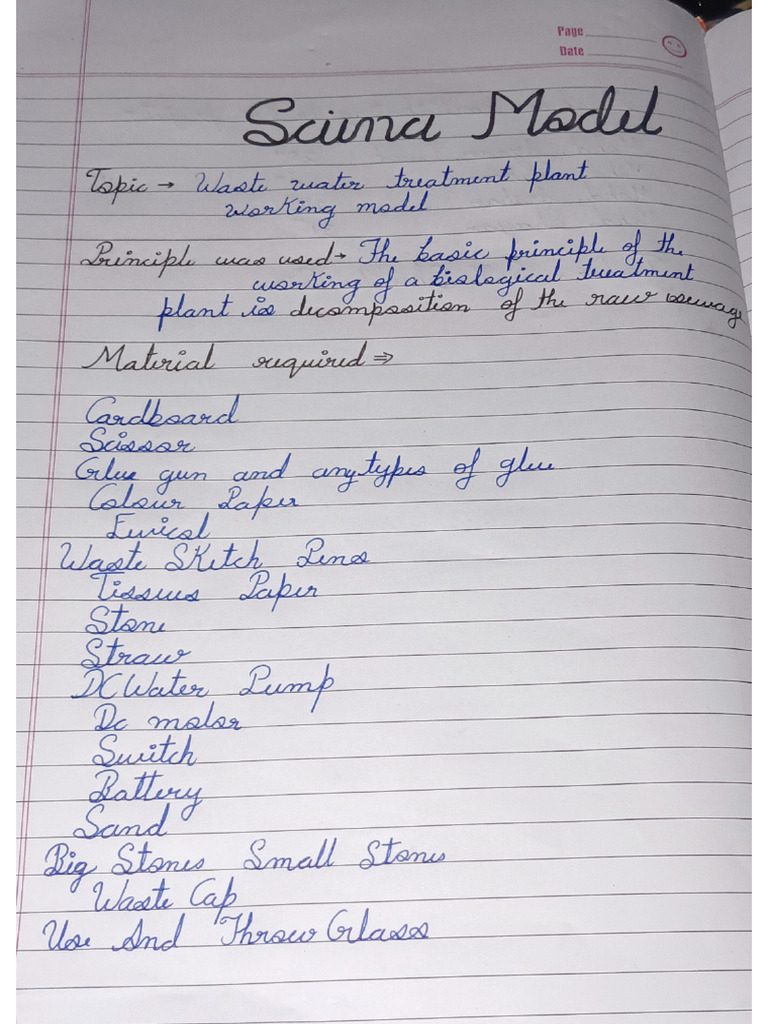 Page
Date
Science Model
Topic → Waste water treatment plant
working model
Principle was used → The basic principle of the
working of a biological treatment
plant is decomposition of the raw sewage
Material required ⇒
Cardboard
Scissor
Glue gun and anytypes of glue
Colour Paper
Fevicol
Waste Sketch Pens
Tissues Paper
Stone
Straw
DC Water Pump
Dc motor
Switch
Battery
Sand
Big Stones Small Stones
Waste Cap
Use And Throw Glass